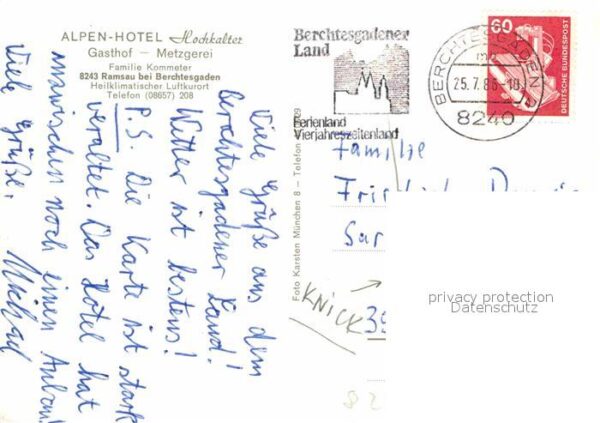 ALPEN-HOTEL Hochkalter
Gasthof — Metzgerei
Familie Kommeter
8243 Ramsau bei Berchtesgaden
Heilklimatischer Luftkurort
Telefon (08657) 208
Viele Grüße aus dem
Berchtesgadener Land!
Wetter ist bestens!
P.S. Die Karte ist stark
veraltet. Das Hotel hat
inzwischen noch einen Anbau
Viele Grüße, Michael
Foto Karsten München 8 — Telefon
Berchtesgadener
Land
Ferienland
Vierjahreszeitenland
BERCHTESGADEN
25.7.86-10
8240
60
DEUTSCHE BUNDESPOST
Familie
KNICK
privacy protection
Datenschutz
82